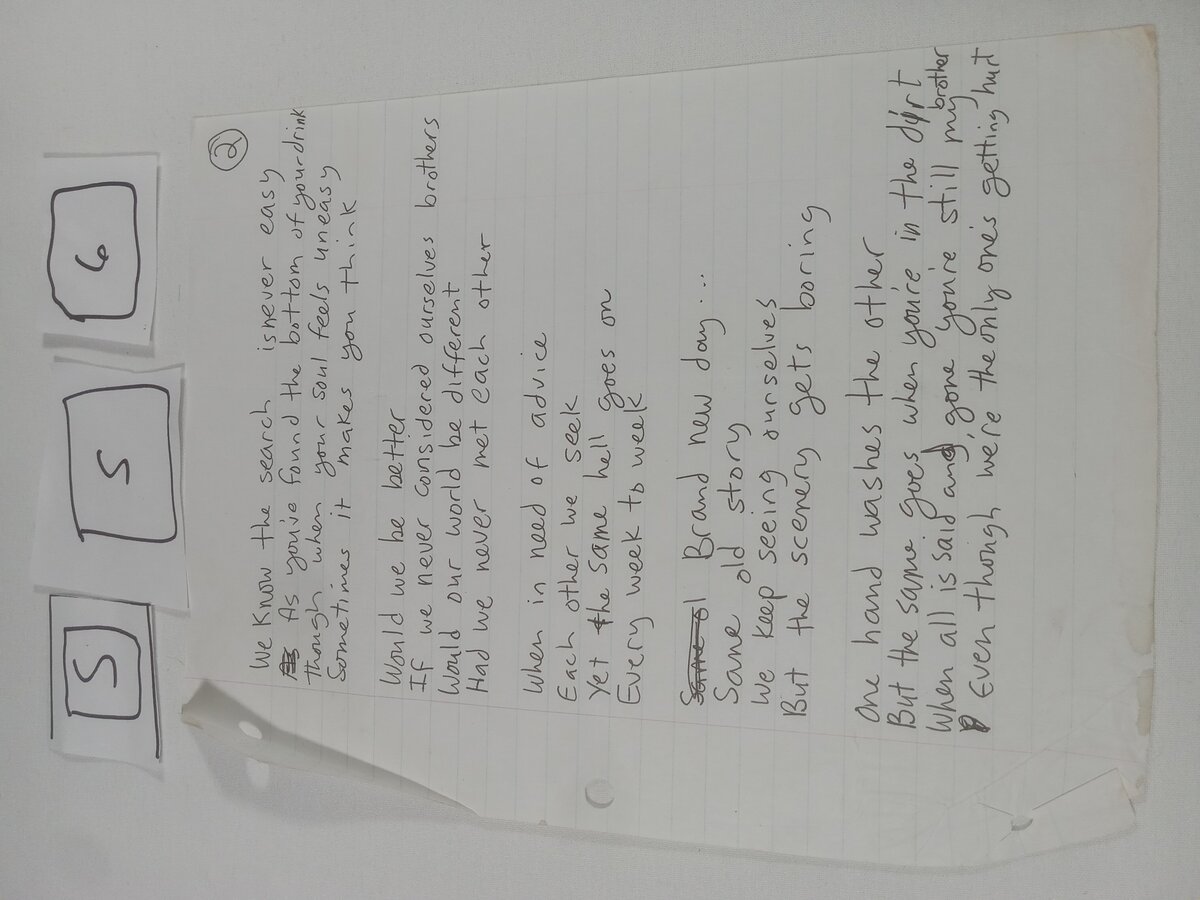 5
5
6
2
We know the search isnever easy
As you've found the bottom of your drink
though when your soul feels uneasy
Sometimes it makes you think
Would we be better
If we never considered ourselves brothers
Would our world be different
Had we never met each other
When in need of advice
Each other we seek
Yet the same hell goes on
Every week to week
Same ol Brand new day...
Same old story
We keep seeing ourselves
But the scenery gets boring
One hand washes the other
But the same goes when you're in the dirt
When all is said and, gone you're still my brother
Even though we're the only one's getting hurt